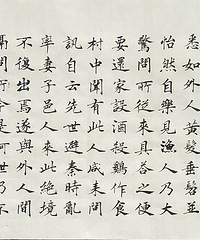 悉如外人黃髮垂髫並
怡然自樂見漁人乃大
驚問所從來具答之便
要還家設酒殺鷄作食
村中聞有此人咸來問
訊自云先世避秦時亂
率妻子邑人來此絕境
不復出焉遂與外人間